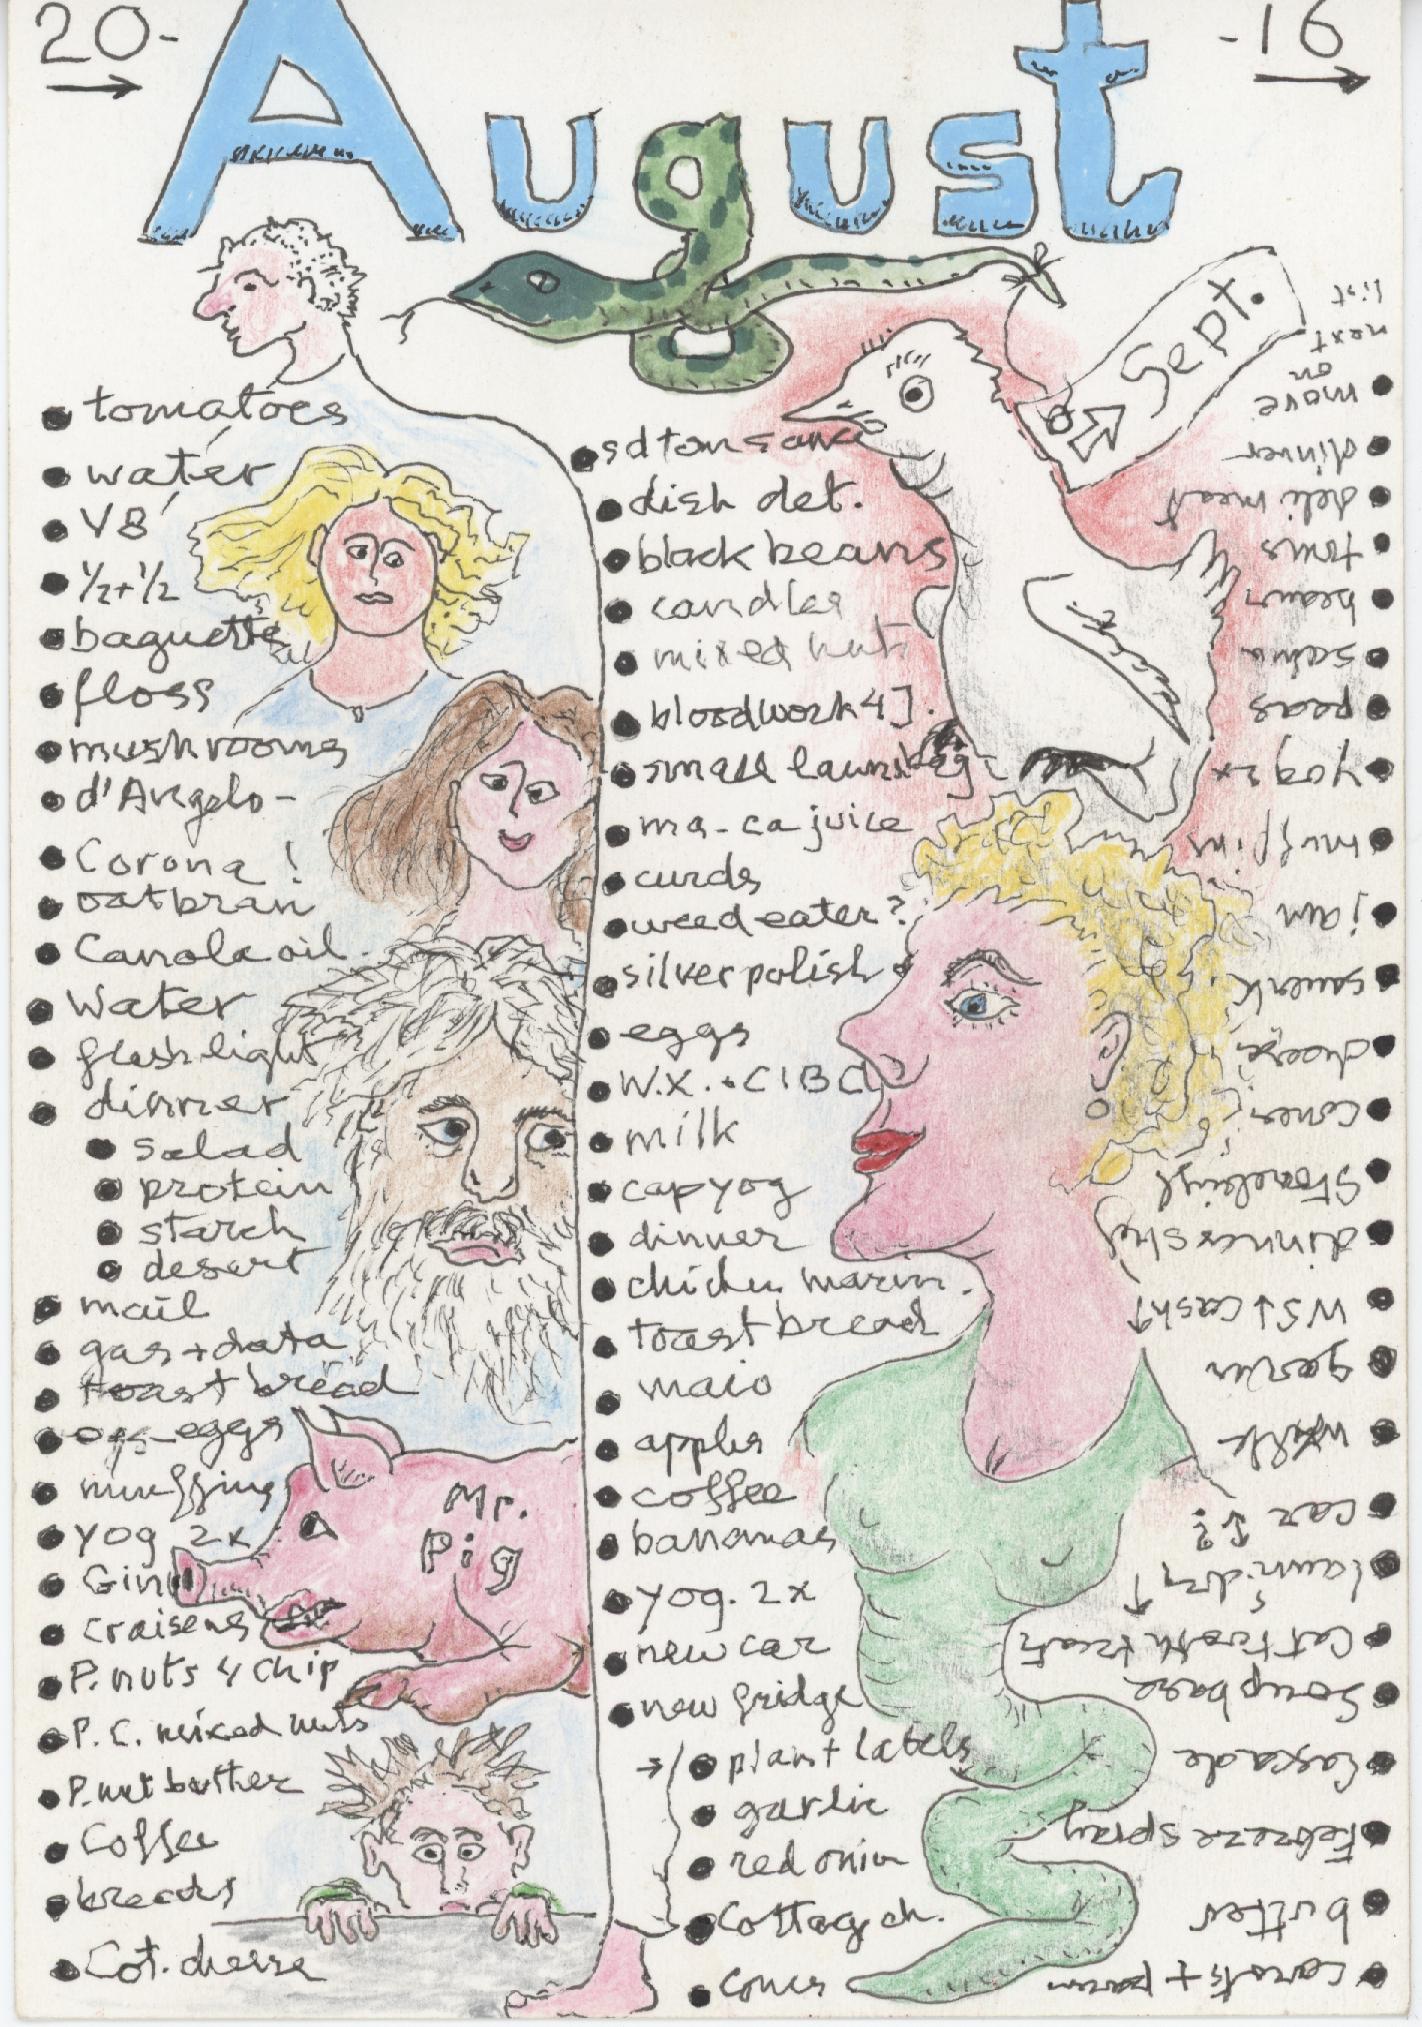 20-
-16
August
Sept.
tomatoes
water
V8
1/2+1/2
baguette
floss
mushrooms
d'Angelo-
Corona!
oatbran
Canola oil
Water
flashlight
dinner
salad
protein
starch
desert
mail
gas + data
toast bread
eggs
muffins
yog 2x
Gin
craisens
P. nuts 4 chip
P.C. mixed nuts
P. nut butter
Coffee
breads
Cot. cheese
Mr.
Pig
sd tom sauce
dish det.
black beans
candles
mixed nuts
bloodwork 4].
small laund bag
ma-ca juice
curds
weed eater?
silver polish
eggs
W.X. + CIBC
milk
cap yog
dinner
chicken marin.
toast bread
maio
apples
coffee
bananas
yog. 2x
new car
new fridge
→ plant labels
garlic
red onion
Cottag ch.
cones
carrots + parsn
butter
Febreze spray
Cascade
Soup base
Cat tooth treats
laundry ↑
car ↑?
walk
garlin
WS↓ cash↑
dinner shef
cones
cheese
jam
muffins
yog 2x
peas
salsa
beans
toms
deli meat
dinner
move
on
next
list